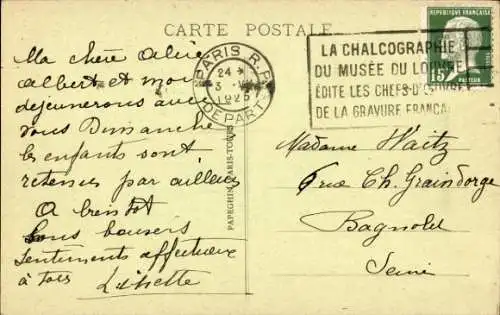 CARTE POSTALE
Ma chère Alice
Albert et moi
dejeunerons avec
vous Dimanche
les enfants sont
retenus par ailleurs
A bientôt
bons baisers
Sentiments affectueux
à tous
PAPEGHIN, PARIS-TOURS
PARIS R.P.
24
3
1925
DEPART
LA CHALCOGRAPHIE
DU MUSÉE DU LOUVRE
ÉDITE LES CHEFS D'OEUVRE
DE LA GRAVURE FRANÇA
REPUBLIQUE FRANÇAISE
15
PASTEUR
Madame Waitz
6 rue Ch. Graindorge
Bagnolet
Seine